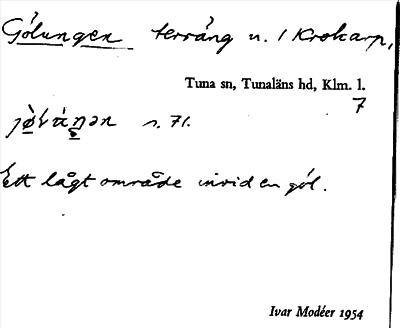 Gölungen terräng n. 1 Krokarp,
Tuna sn, Tunaläns hd, Klm. l.
7
s. 71.
Ett lågt område invid en göl.
Ivar Modéer 1954